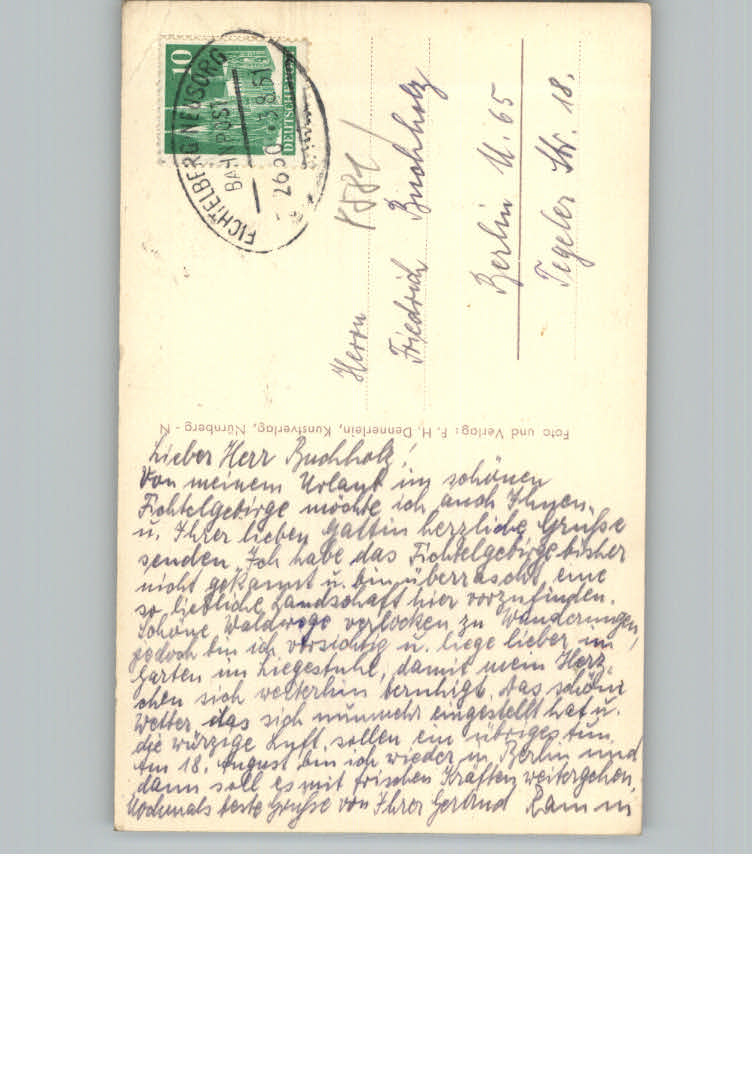 10
DEUTSCHE POST
FICHTELBERG-NEUSORG
BAHNPOST
2650 -3.8.51
Herrn
Friedrich Buchholz
Berlin N. 65
Tegeler Str. 18.
Foto und Verlag: F. H. Dennerlein, Kunstverlag, Nürnberg - N
Lieber Herr Buchholz!
Von meinem Urlaub im schönen
Fichtelgebirge möchte ich auch Ihnen
u. Ihrer lieben Gattin herzliche Grüße
senden. Ich habe das Fichtelgebirge bisher
nicht gekannt u. bin überrascht, eine
so liebliche Landschaft hier vorzufinden.
Schöne Waldwege verlocken zu Wanderungen,
jedoch bin ich vorsichtig u. liege lieber im
Garten im Liegestuhl, damit mein Herz-
chen sich weiterhin beruhigt. Das schöne
Wetter das sich nunmehr eingestellt hat u.
die würzige Luft sollen ein übriges tun.
Am 18. August bin ich wieder in Berlin und
dann soll es mit frischen Kräften weitergehen.
Nochmals beste Grüße von Ihrer Gertrud